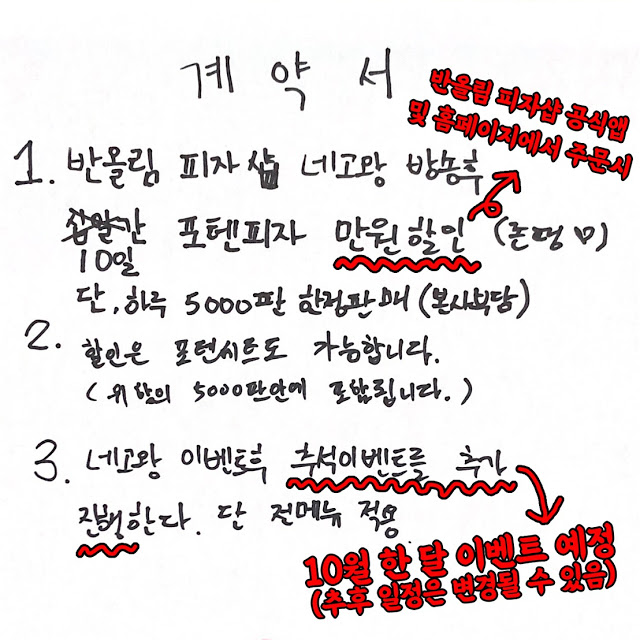 계약서
반올림 피자샵 공식앱
및 홈페이지에서 주문시
1. 반올림 피자 샵 네고왕 방송후
10일간 포텐피자 만원할인
단, 하루 5000판 한정판매 (본사부담)
2. 할인은 포텐세트도 가능합니다.
(위 합의 5000판안에 포함됩니다.)
3. 네고왕 이벤트후 추석이벤트를 추가
진행한다. 단 전메뉴 적용
10월 한 달 이벤트 예정
(추후 일정은 변경될 수 있음)